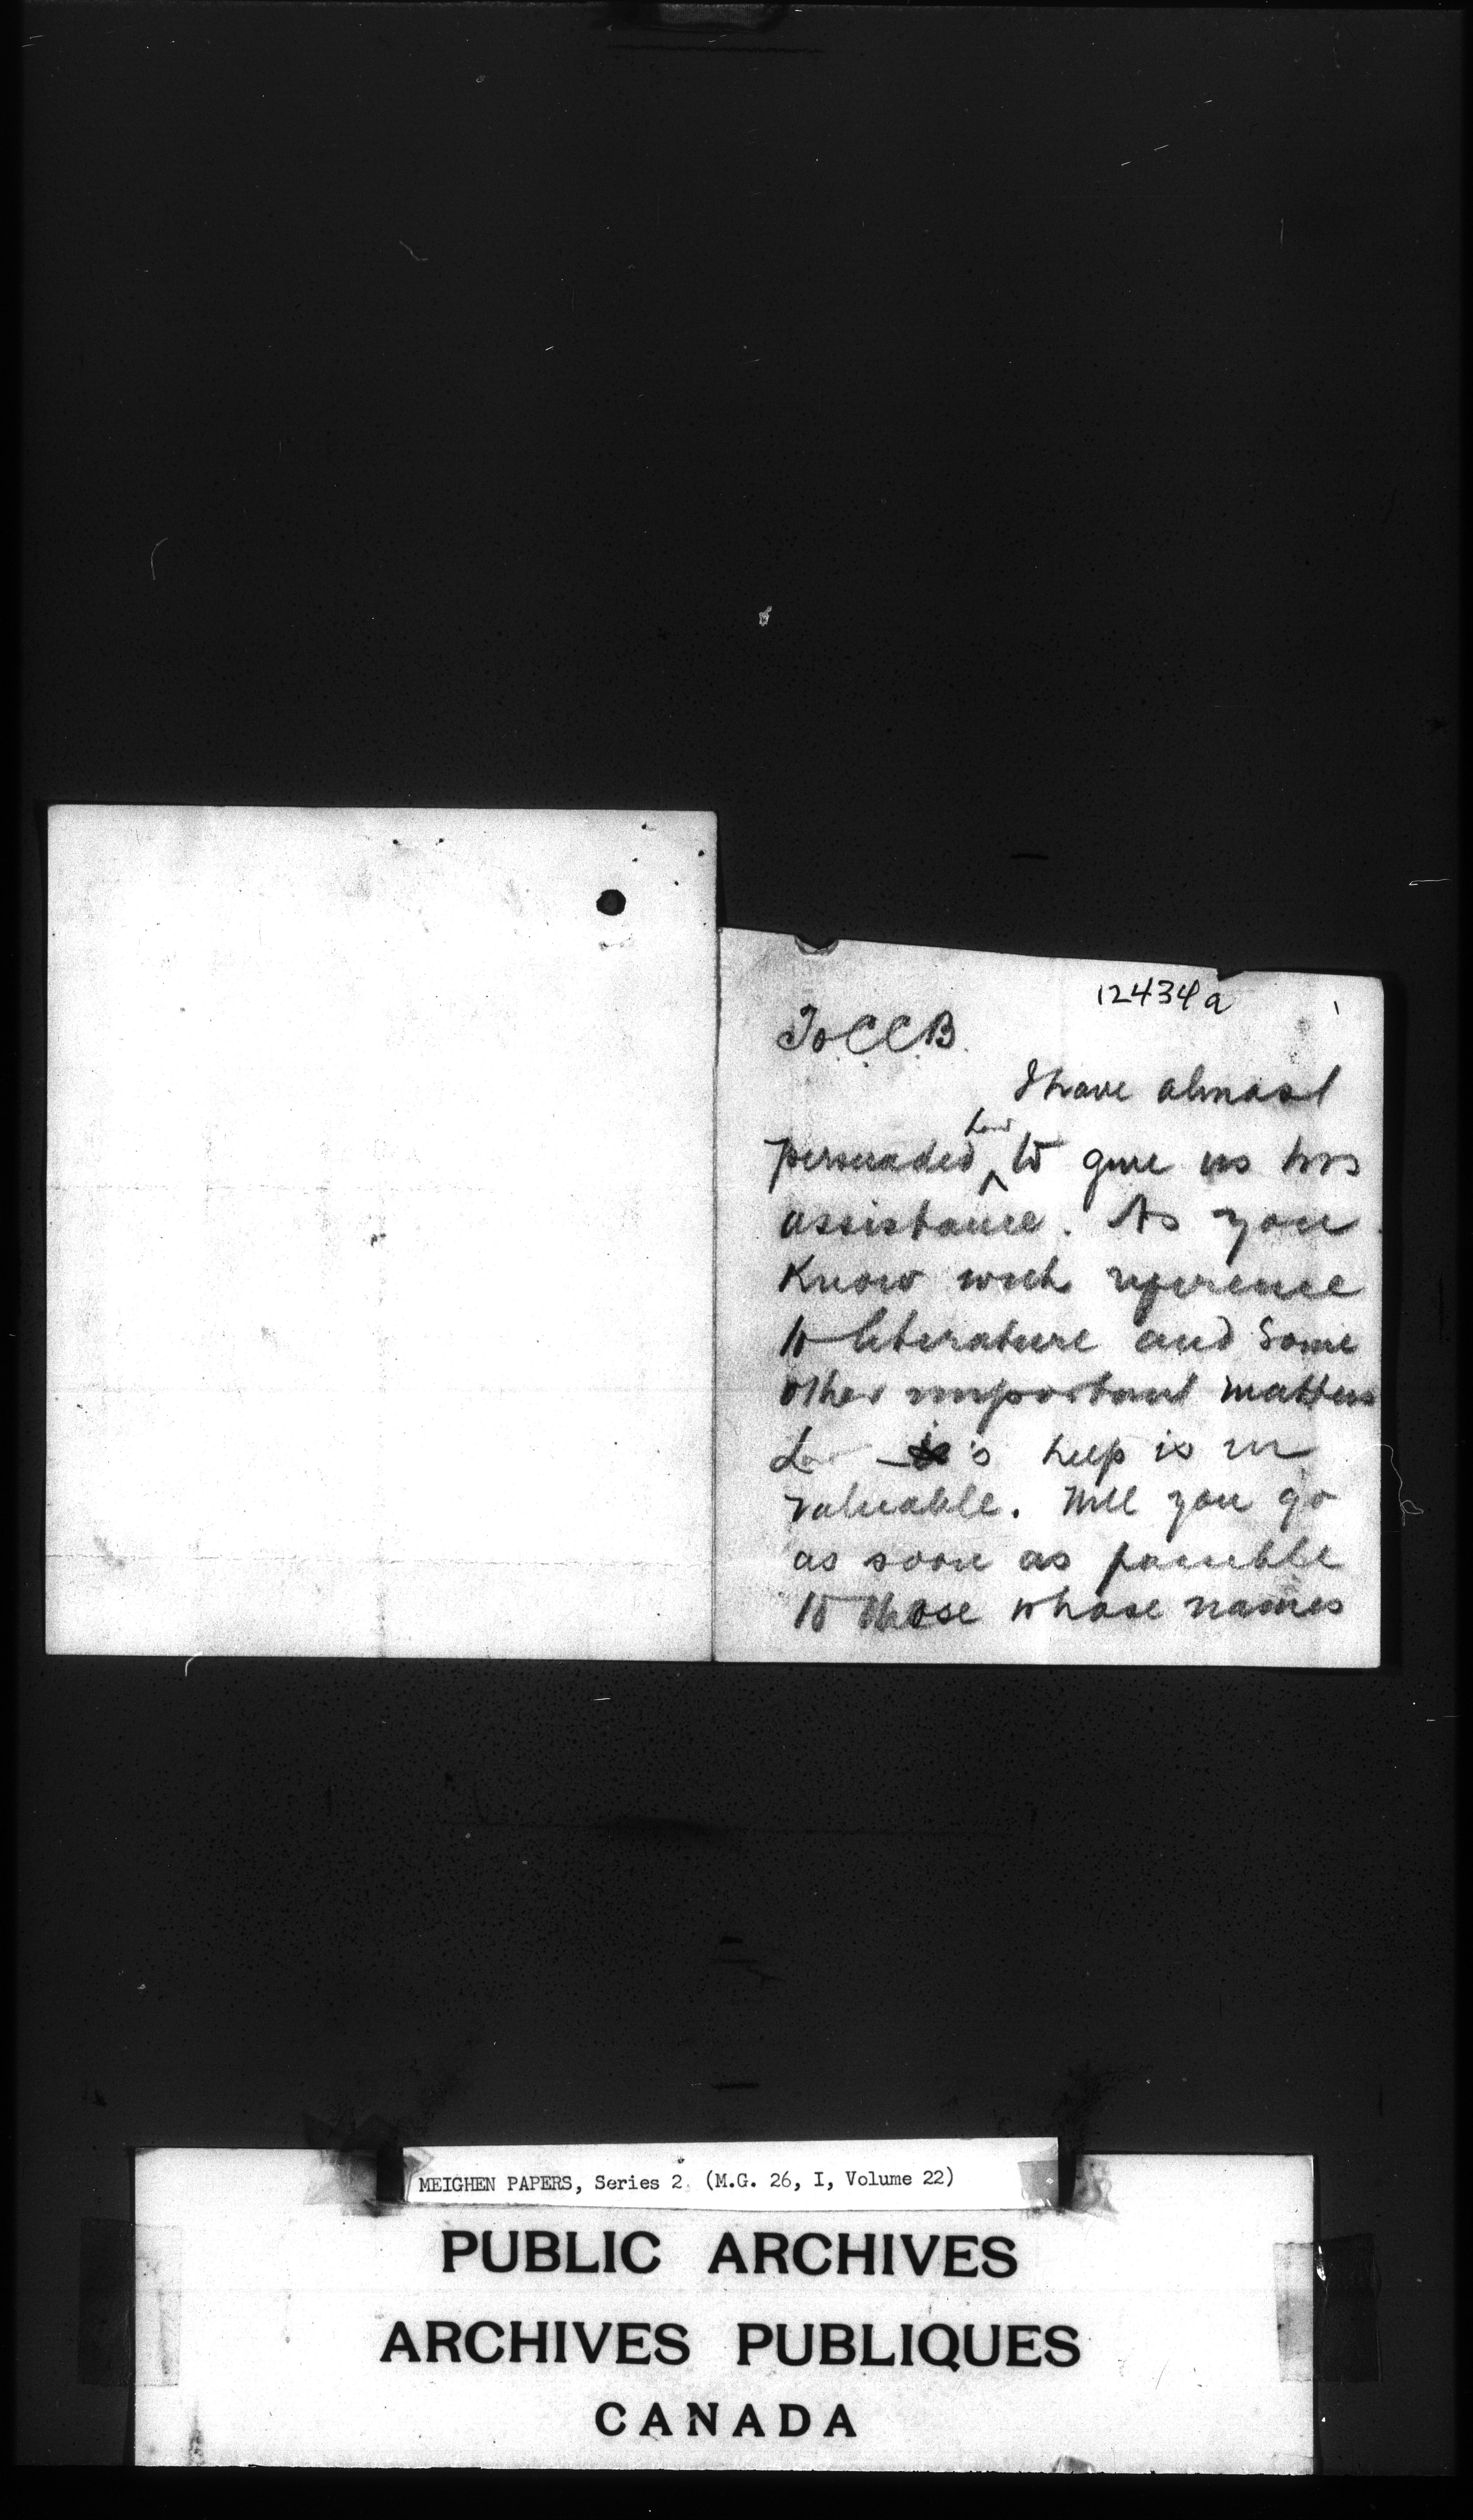 12434a
To CCB.
I have almost
persuaded to give us his
assistance. As you
know with reference
to literature and some
other important matters
's help is in
valuable. Will you go
as soon as possible
to those whose names
MEIGHEN PAPERS, Series 2 (M.G. 26, I, Volume 22)
PUBLIC ARCHIVES
ARCHIVES PUBLIQUES
CANADA